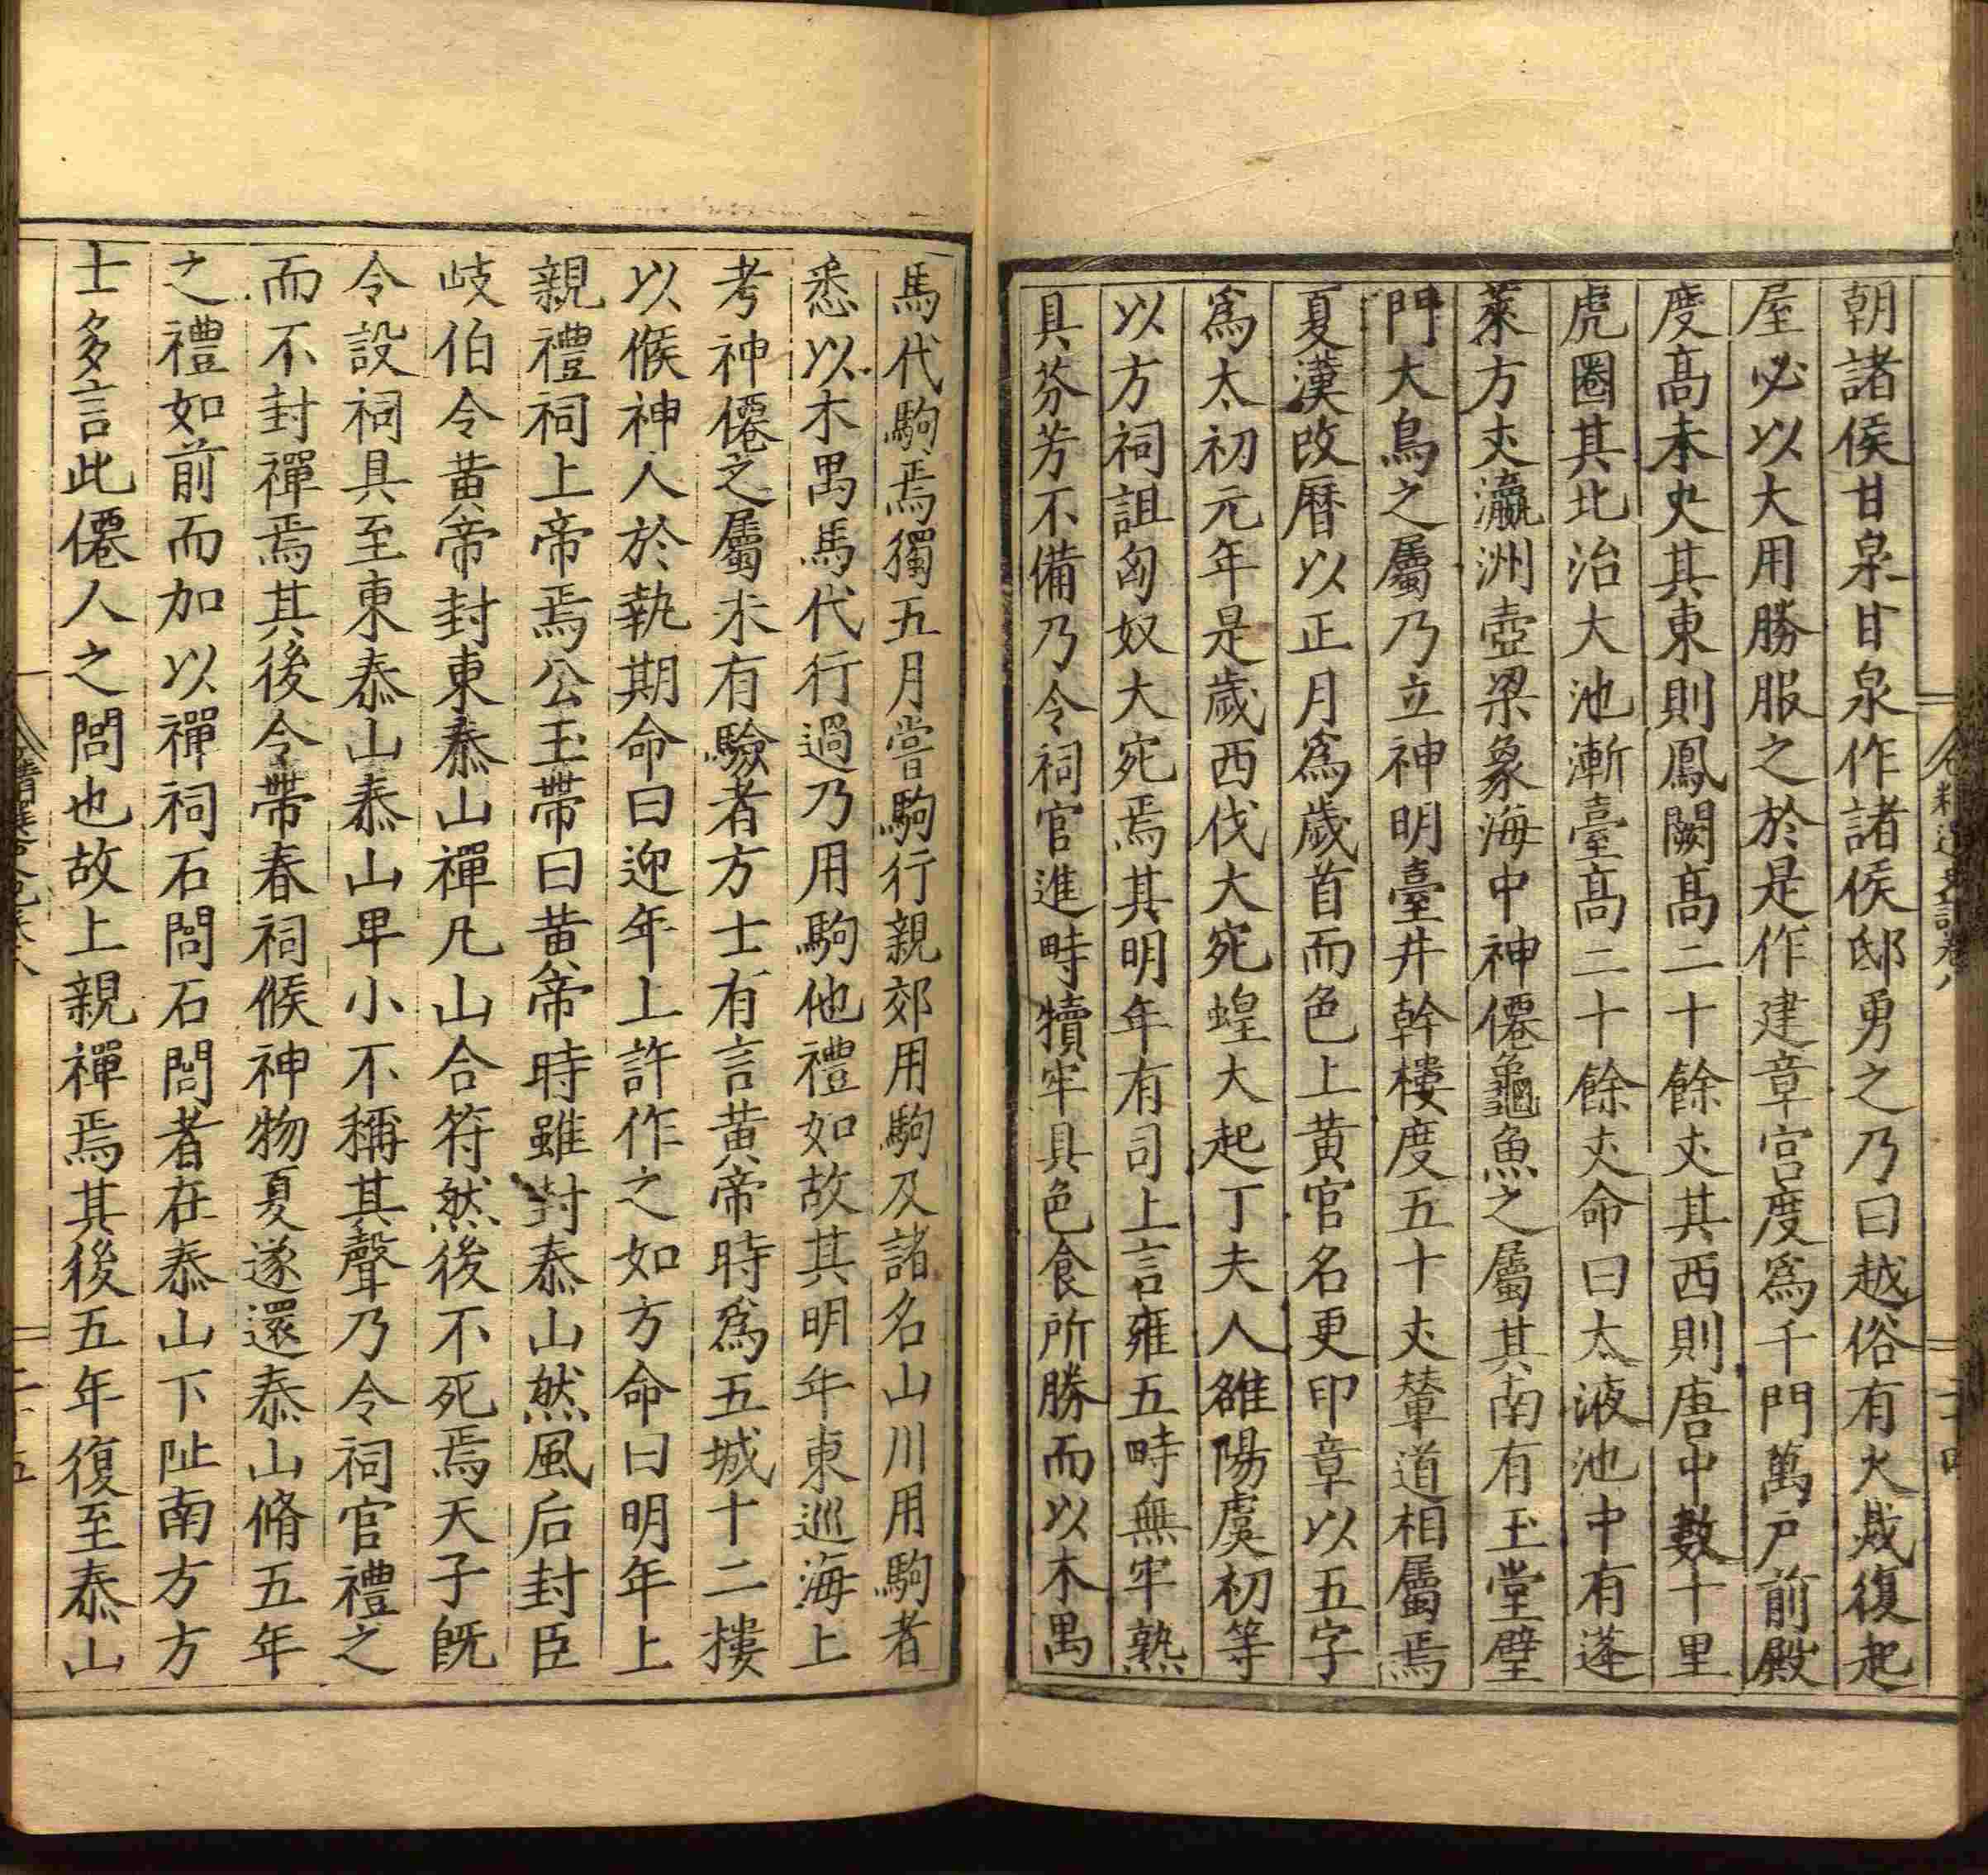 朝諸侯甘泉甘泉作諸侯邸勇之乃曰越俗有火烖復起
屋必以大用勝服之於是作建章宫度爲千門萬戸前殿
度髙未央其東則鳳闕髙二十餘丈其西則唐中數十里
虎圈其北治大池漸臺髙二十餘丈命曰太液池中有蓬
萊方丈瀛洲壺梁象海中神僊龜魚之屬其南有玉堂璧
門大鳥之屬乃立神明臺井幹樓度五十丈輦道相屬焉
夏漢改曆以正月爲歲首而色上黄官名更印章以五字
爲太初元年是歲西伐大宛蝗大起丁夫人雒陽虞初等
以方祠詛匈奴大宛焉其明年有司上言雍五畤無牢熟
具芬芳不備乃令祠官進畤犢牢具色食所勝而以木禺
馬代駒焉獨五月嘗駒行親郊用駒及諸名山川用駒者
悉以木禺馬代行過乃用駒他禮如故其明年東巡海上
考神僊之屬未有驗者方士有言黄帝時爲五城十二樓
以候神人於執期命曰迎年上許作之如方命曰明年上
親禮祠上帝焉公玉帶曰黄帝時雖封泰山然風后封臣
岐伯令黄帝封東泰山禪凡山合符然後不死焉天子旣
令設祠具至東泰山泰山卑小不稱其聲乃令祠官禮之
而不封禪焉其後令帶春祠候神物夏遂還泰山脩五年
之禮如前而加以禪祠石閭石閭者在泰山下阯南方方
士多言此僊人之閭也故上親禪焉其後五年復至泰山